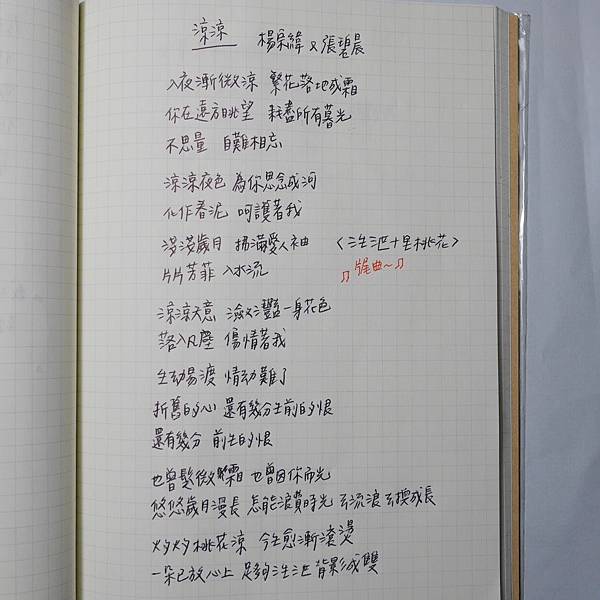 涼涼 楊宗緯 x 張碧晨
入夜漸微涼 繁花落地成霜
你在遠方眺望 耗盡所有暮光
不思量 自難相忘
涼涼夜色 為你思念成河
化作春泥 呵護著我
淺淺歲月 拂滿愛人袖 〈三生三世十里桃花〉
片片芳菲 入水流 ♫片尾曲~♫
涼涼天意 瀲灩一身花色
落入凡塵 傷情著我
生劫易渡 情劫難了
折舊的心 還有幾分前生的恨
還有幾分 前生的恨
也曾鬢微霜 也曾因你而光
悠悠歲月漫長 怎能浪費時光 去流浪 去換成長
灼灼桃花涼 今生愈漸滾燙
一朵已放心上 足夠三生三世 背影成雙